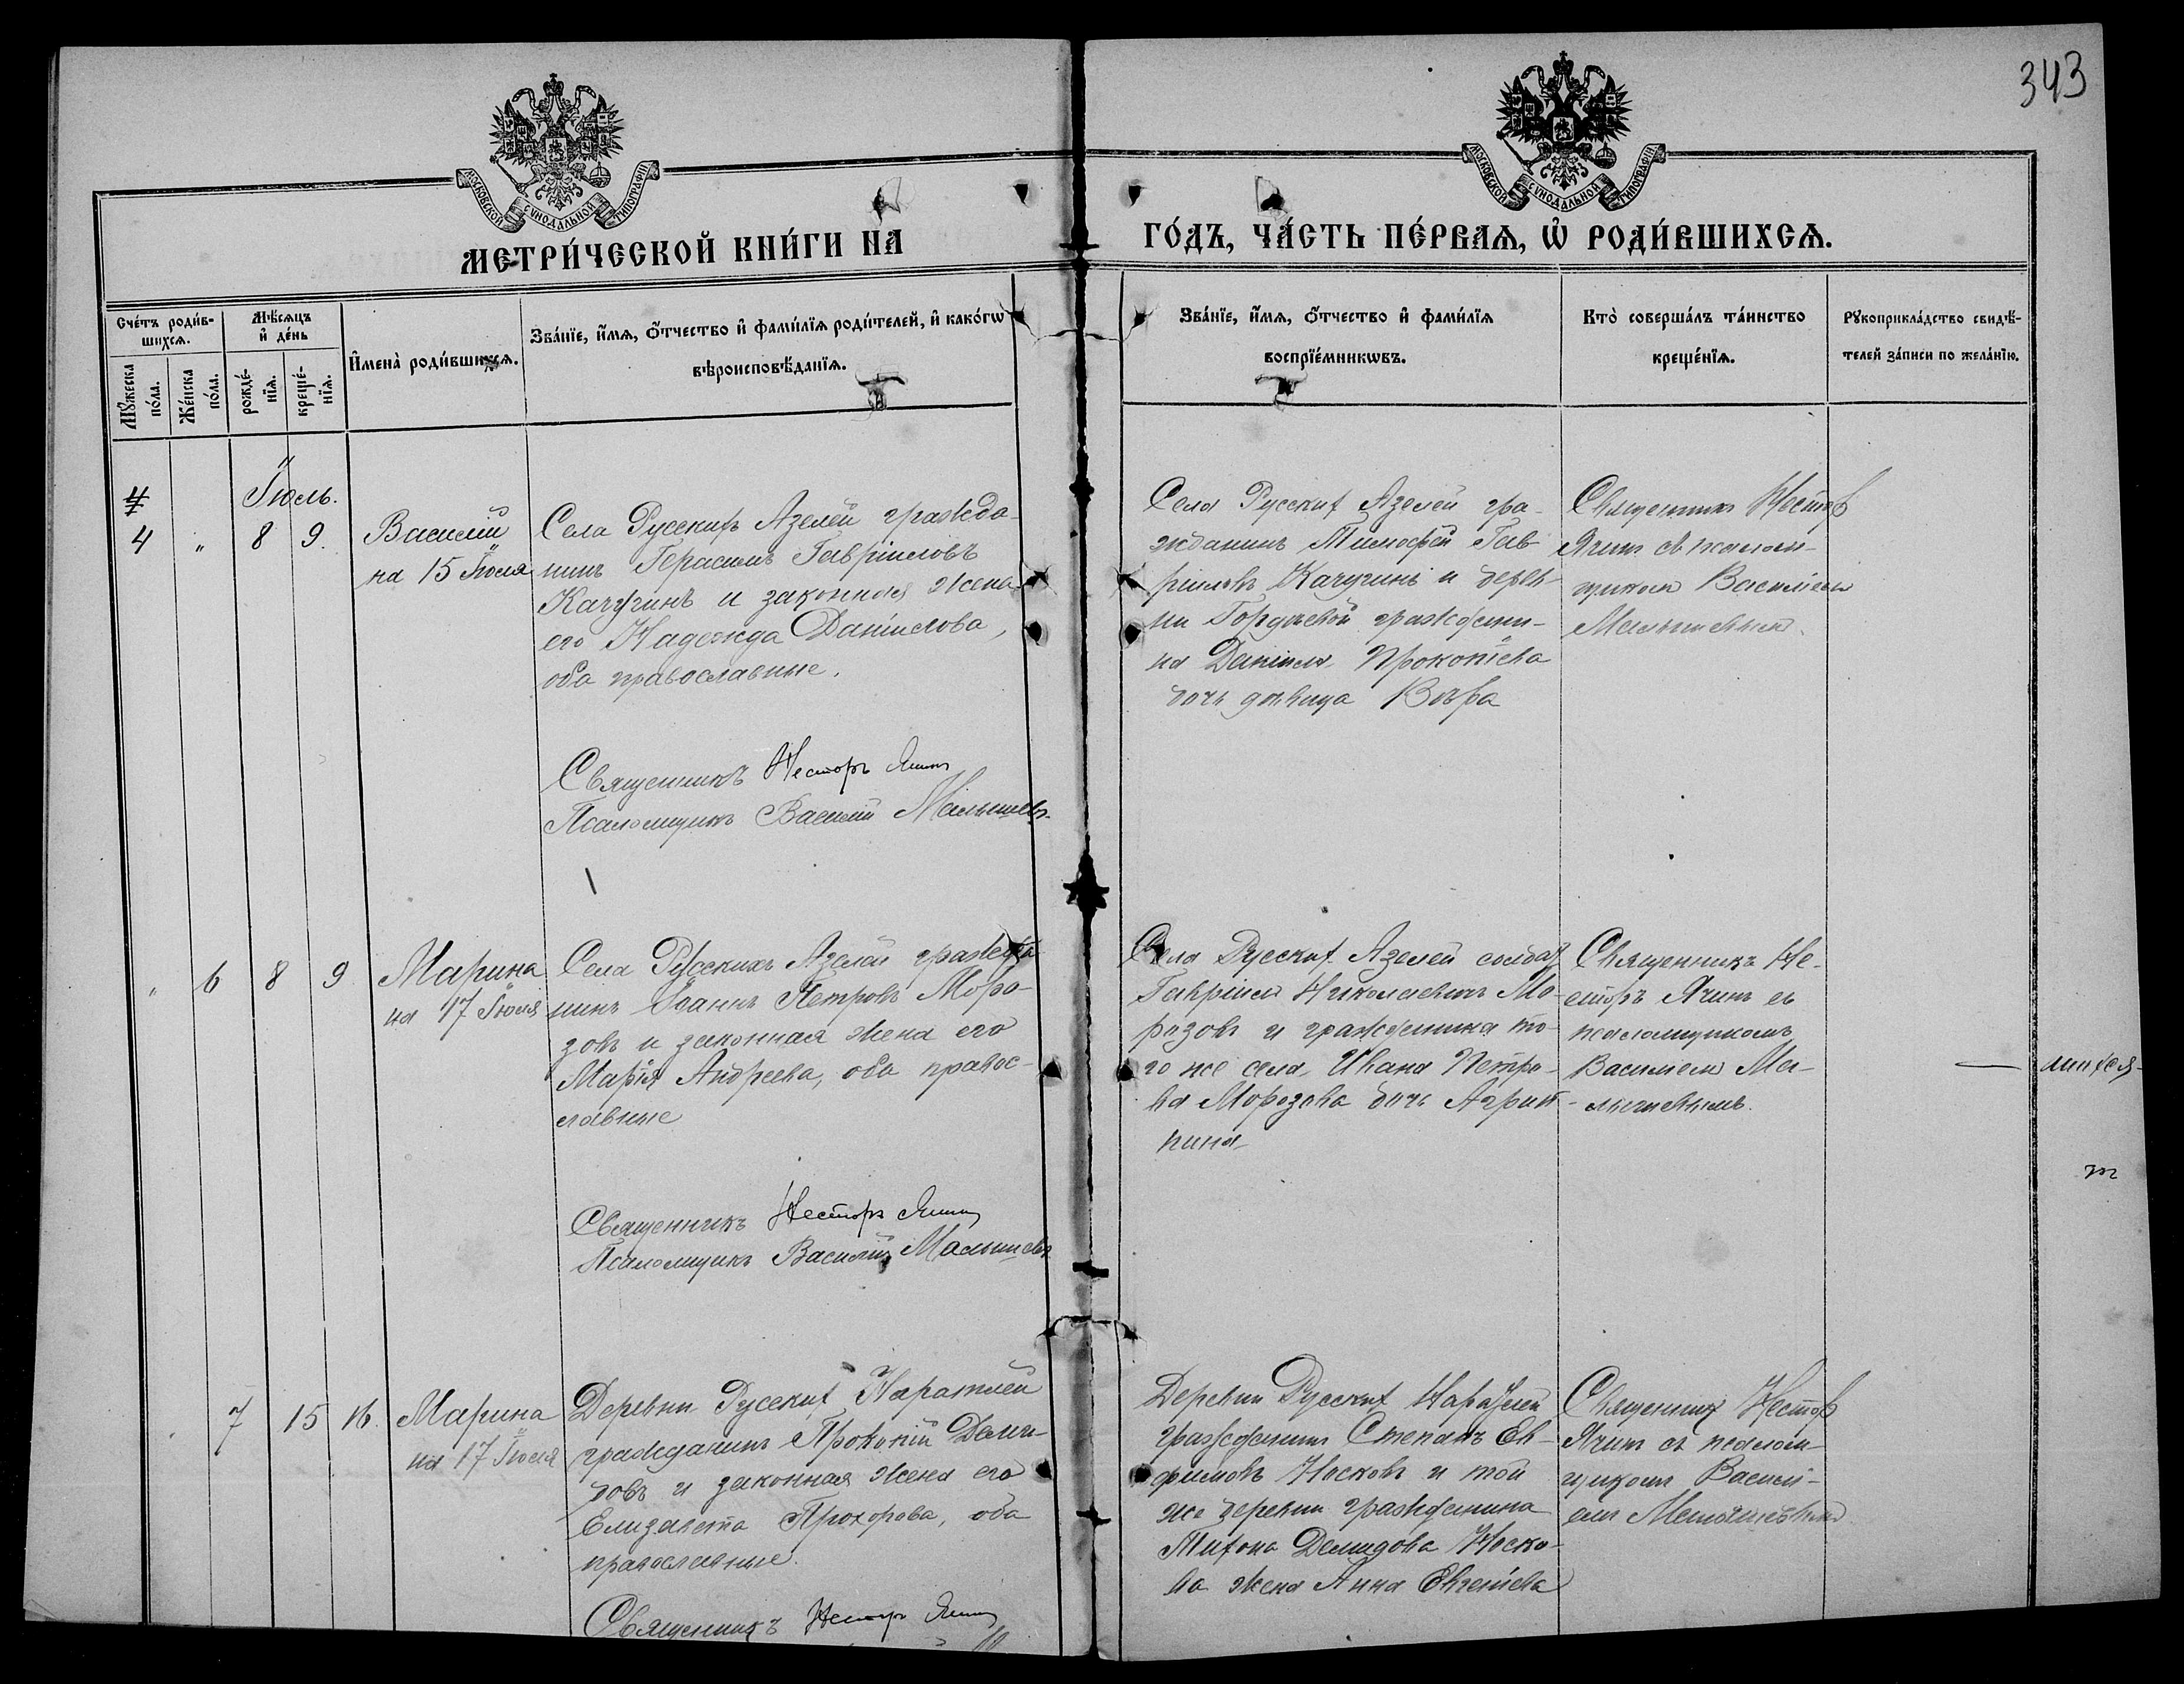 343
МОСКОВСКОЙ СѴНОДАЛЬНОЙ ТИПОГРАФІИ
МОСКОВСКОЙ СѴНОДАЛЬНОЙ ТИПОГРАФІИ
МЕТРИ́ЧЕСКОЙ КНИ́ГИ НА
ГО́ДЪ, ЧА́СТЬ ПЕ́РВАѦ, Ѡ РОДИ́ВШИХСѦ.
Сче́тъ роди́в-
шихсѧ.
Мꙋ́жеска
по́ла.
Же́нска
по́ла.
Мѣ́сѧцъ
и҆ де́нь
рожде́-
нїѧ.
креще́-
нїѧ.
И҆мена̀ роди́вшихсѧ.
Зва́нїе, и҆́мѧ, ѻ҆́тчество и҆ фами́лїѧ роди́телей, и҆ како́гѡ
вѣроисповѣ́данїѧ.
Зва́нїе, и҆́мѧ, ѻ҆́тчество и҆ фами́лїѧ
воспрїе́мникѡвъ.
Кто̀ соверша́лъ та́инство
креще́нїѧ.
Рꙋкоприкла́дство свидѣ́-
телей за́писи по жела́нїю.
Іюль.
4 " 8 9.
Василій
на 15 Іюля
Села Русскихъ Азелей гражда-
нинъ Герасимъ Гавріиловъ
Качугинъ и законная жена
его Надежда Даніилова,
оба православные.
Священникъ Несторъ Ячинъ
Псаломщикъ Василій Малышевъ
Села Русских Азелей гра-
жданинъ Тимофей Гав-
ріиловъ Качугинъ и дерев-
ни Гордѣевой граждани-
на Даніила Прокопіева
дочь дѣвица Вѣра
Священникъ Несторъ
Ячинъ съ псалом-
щикомъ Василіемъ
Малышевымъ.
" 6 8 9
Марина
на 17 Іюля
Села Русскихъ Азелей гражда-
нинъ Іоаннъ Петровъ Моро-
зовъ и законная жена его
Марія Андреева, оба правос-
лавные
Священникъ Несторъ Ячинъ
Псаломщикъ Василій Малышевъ
Села Русских Азелей солдатъ
Гавріилъ Николаевичъ Мо-
розовъ и гражданина то-
го же села Ивана Петро-
ва Морозова дочь Агрип-
пина
Священникъ Не-
сторъ Ячинъ съ
псаломщикомъ
Василіемъ Ма-
лышевымъ.
7 15 16.
Марина
на 17 Іюля
Деревни Русских Наратлей
гражданинъ Прокопій Деми-
довъ и законная жена его
Елизавета Прохорова, оба
православные.
Священникъ Несторъ Ячинъ
Деревни Русских Наратлей
гражданинъ Степанъ Ев-
фимовъ Носковъ и той
же деревни гражданина
Тихона Демидова Носко-
ва жена Анна Евгеніева
Священникъ Несторъ
Ячинъ съ псалом-
щикомъ Васили-
емъ Малышевымъ